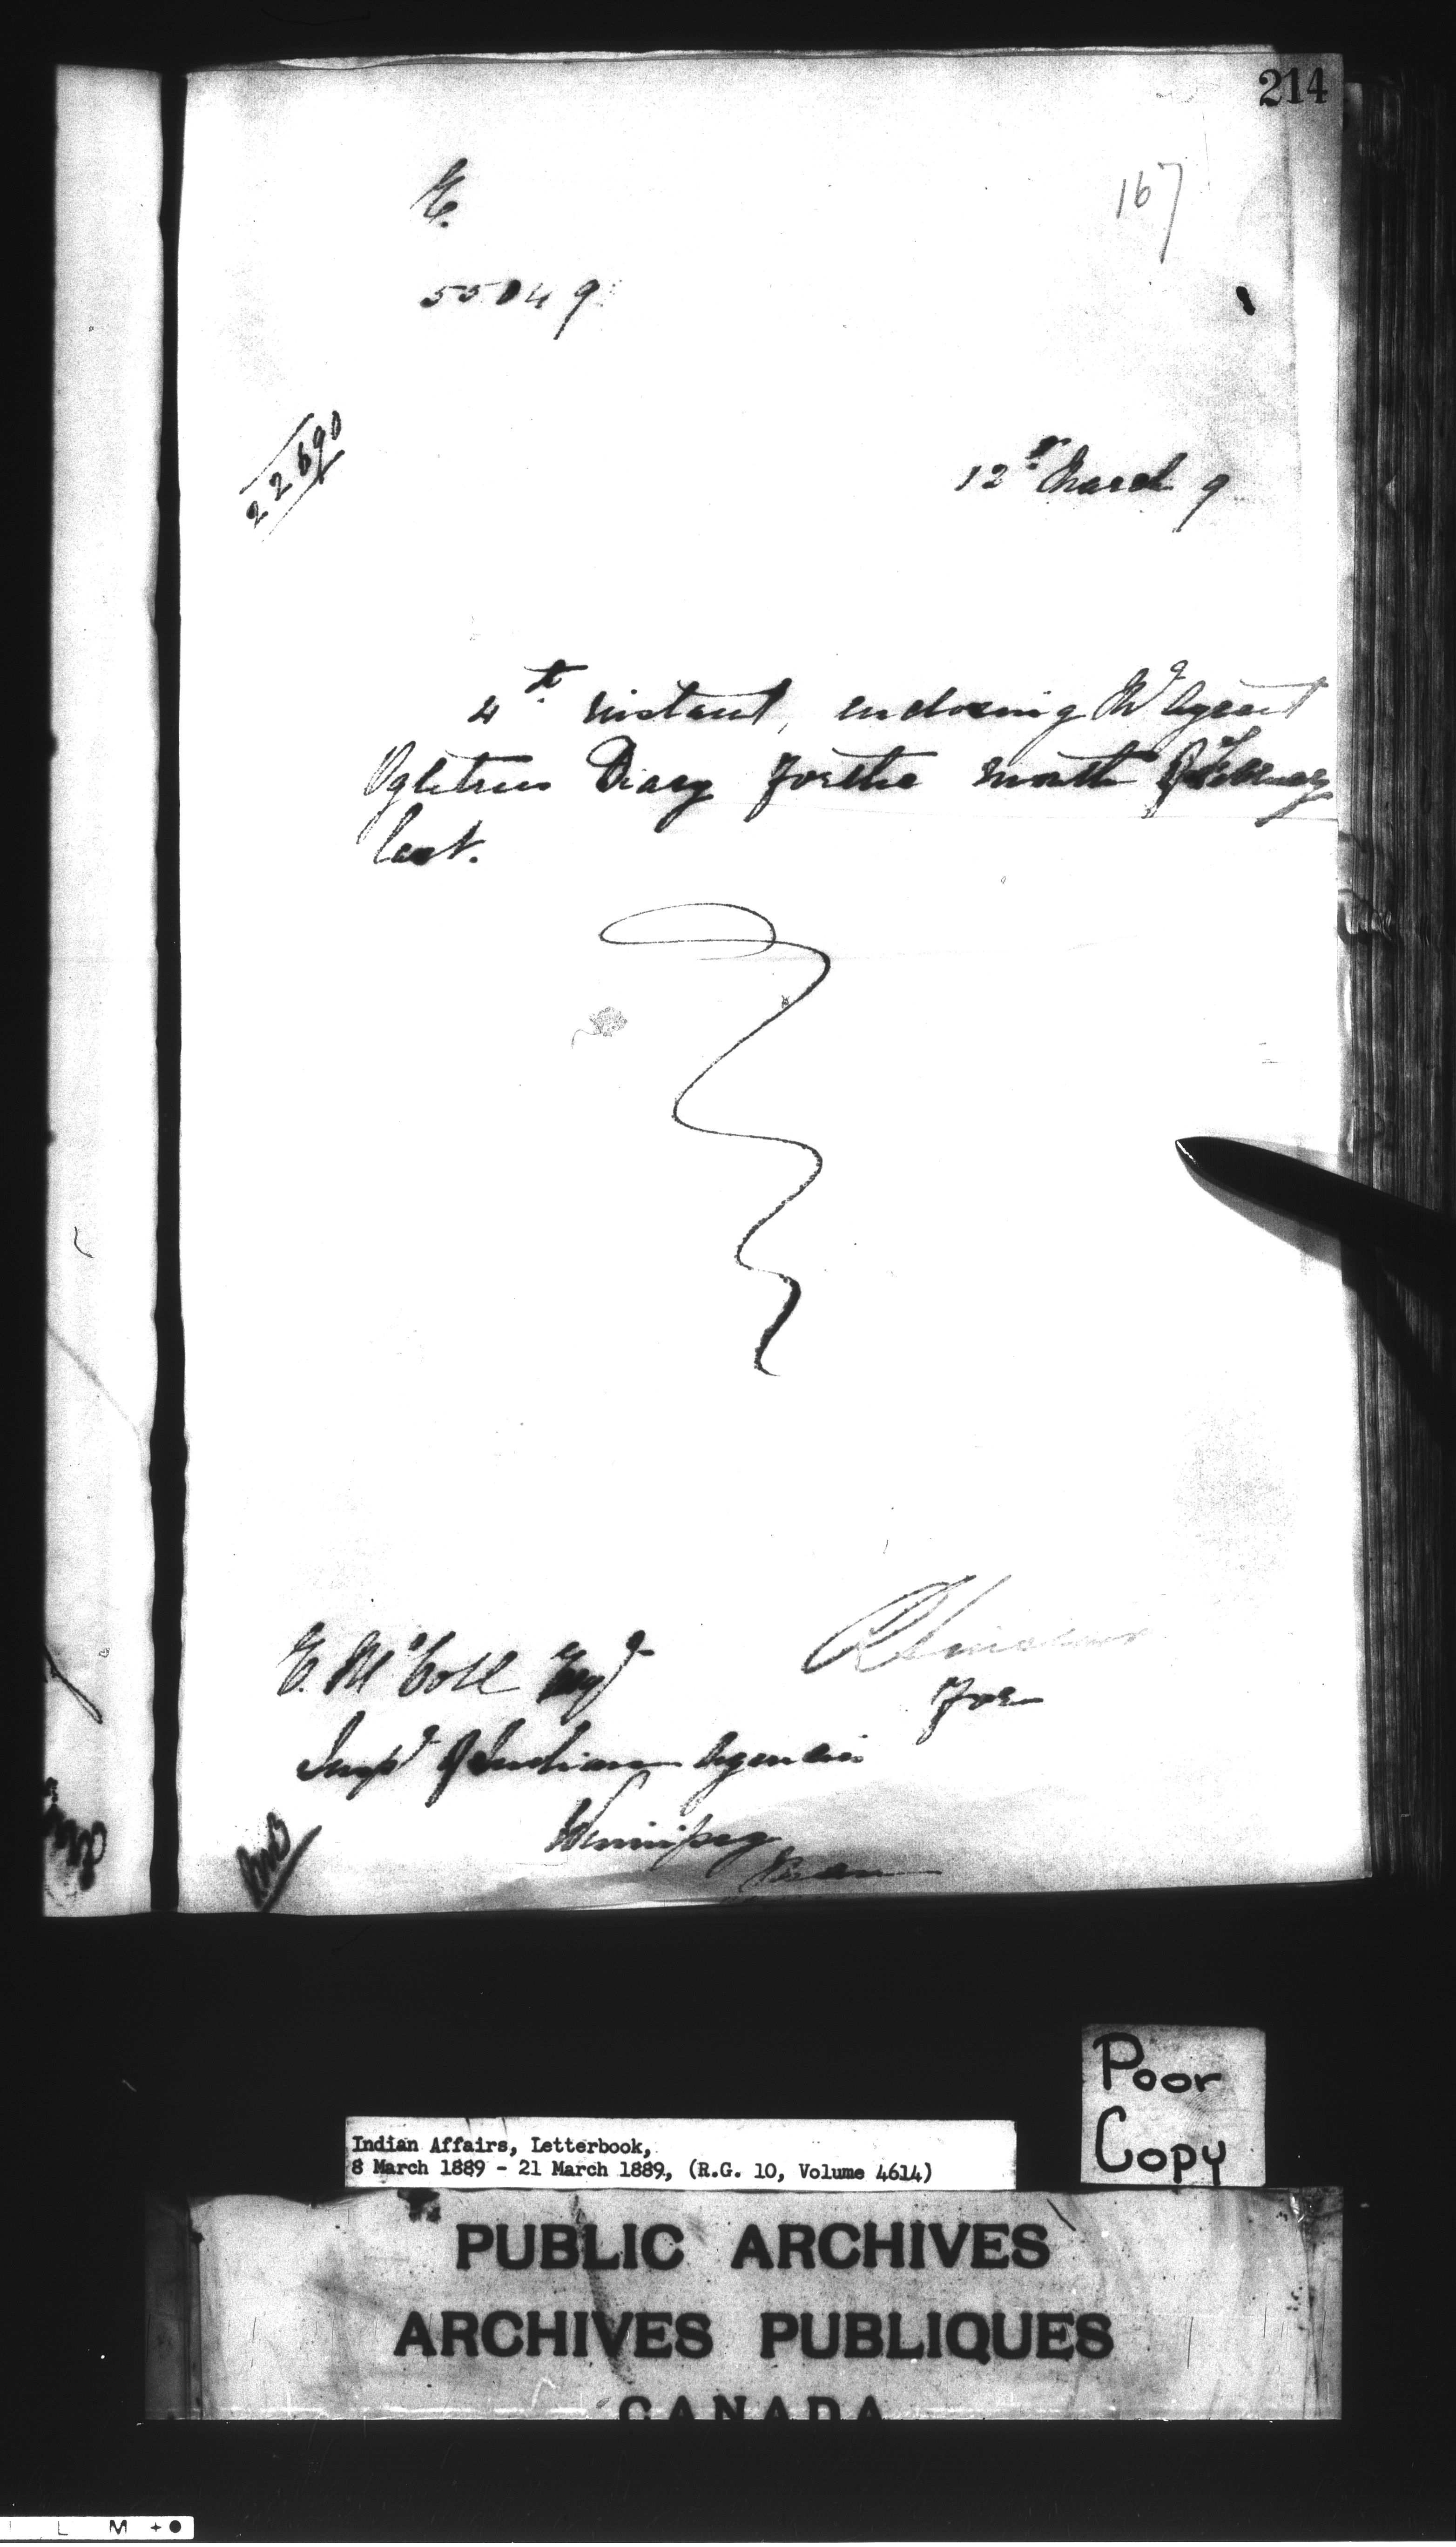 214
167
E.
55049
22690
12th March 9
4th instant, enclosing Mr Agent
Ogletrees Diary for the month of February
last.
E. McColl Esqr
for
Inspr of Indian Agencies
Winnipeg
Man
Poor
Copy
Indian Affairs, Letterbook,
8 March 1889 - 21 March 1889, (R.G. 10, Volume 4614)
PUBLIC ARCHIVES
ARCHIVES PUBLIQUES
CANADA
L M +